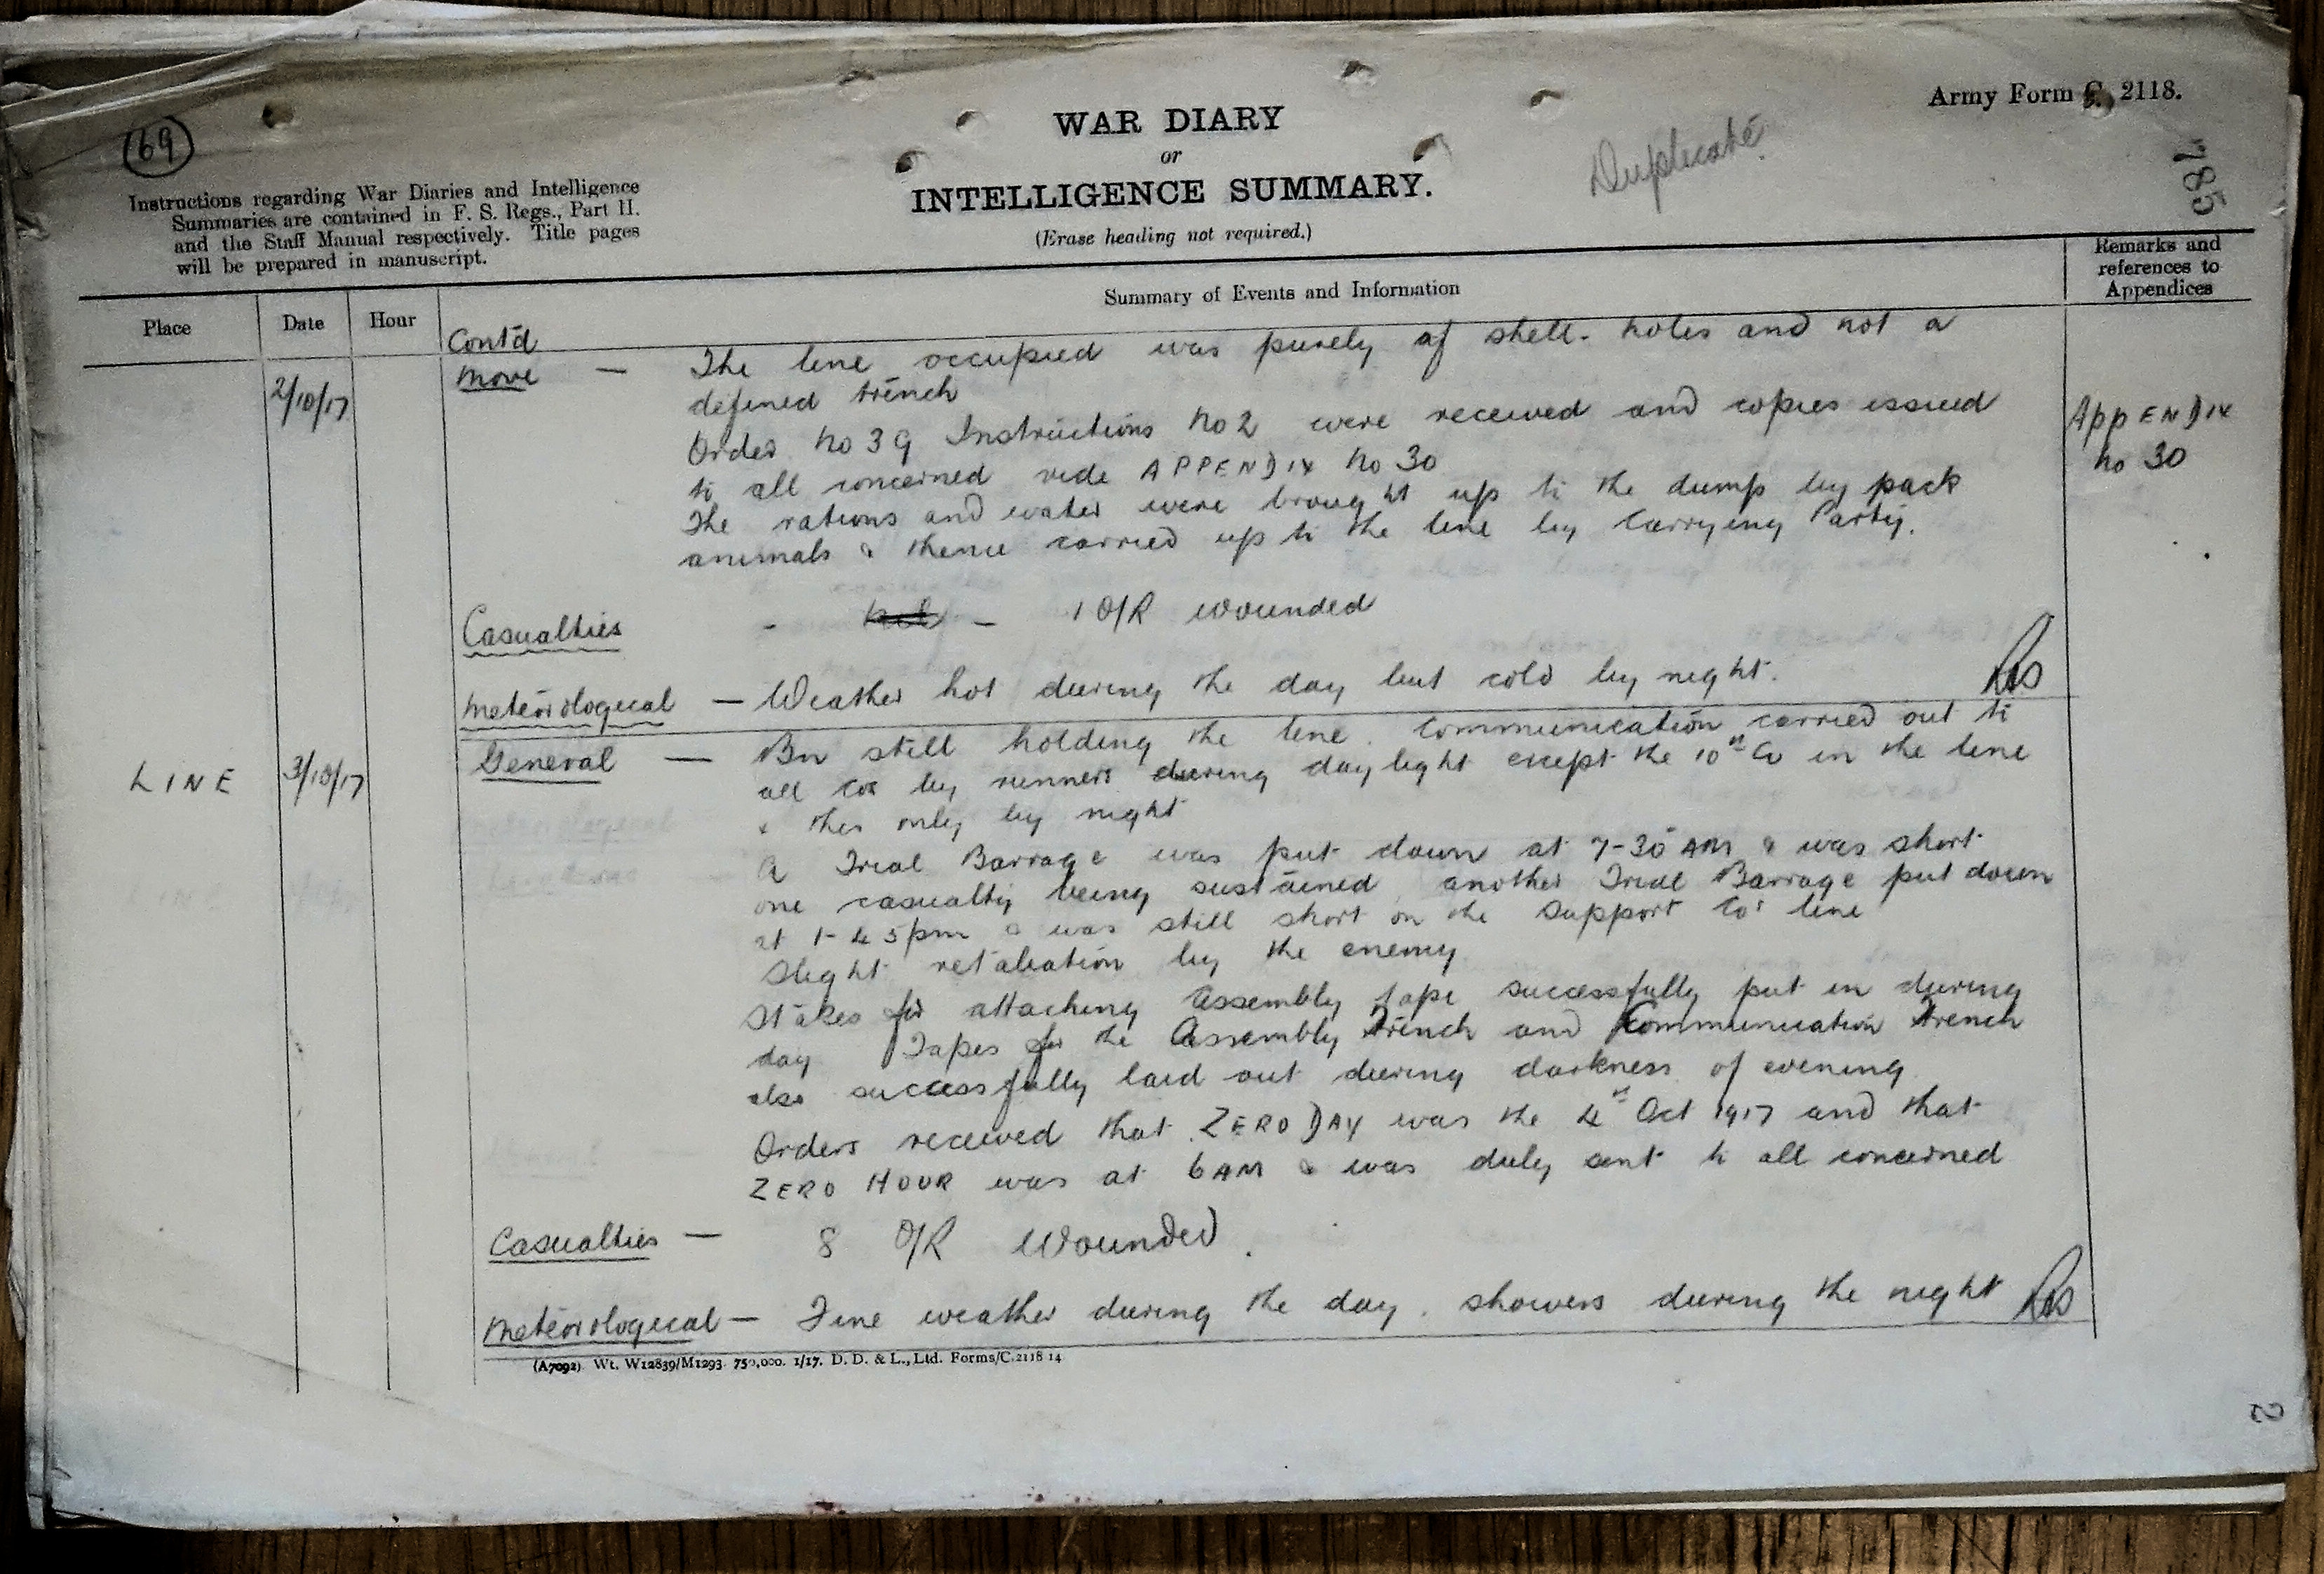 69
Army Form C. 2118.
WAR DIARY
or
INTELLIGENCE SUMMARY.
(Erase heading not required.)
Duplicate
785
Instructions regarding War Diaries and Intelligence
Summaries are contained in F. S. Regs., Part II.
and the Staff Manual respectively. Title pages
will be prepared in manuscript.
Place
Date
Hour
Summary of Events and Information
Remarks and
references to
Appendices
Contd
2/10/17 Move — The line occupied was purely of shell-holes and not a
defined trench
Order No 39 Instructions No 2 were received and copies issued
to all concerned vide APPENDIX No 30
APPENDIX
No 30
The rations and water were brought up to the dump by pack
animals & thence carried up to the line by Carrying Party.
Casualties - Nil - 1 O/R wounded
Meteorological — Weather hot during the day but cold by night.
LINE 3/10/17 General — Bn still holding the line. Communication carried out to
all Cos by runners during daylight except the 10th Co in the line
& this only by night
A Trial Barrage was put down at 7-30 AM & was short
one casualty being sustained another Trial Barrage put down
at 1-45pm & was still short on the Support Co's line
Slight retaliation by the enemy
Stakes for attaching Assembly tape successfully put in during
day Tapes for the Assembly Trench and Communication Trench
also successfully laid out during darkness of evening
Orders received that ZERO DAY was the 4th Oct 1917 and that
ZERO HOUR was at 6AM & was duly sent to all concerned
Casualties — 8 O/R Wounded.
Meteorological — Fine weather during the day. showers during the night
(A7092) Wt. W12839/M1293 750,000. 1/17. D. D. & L., Ltd. Forms/C.2118 14
2